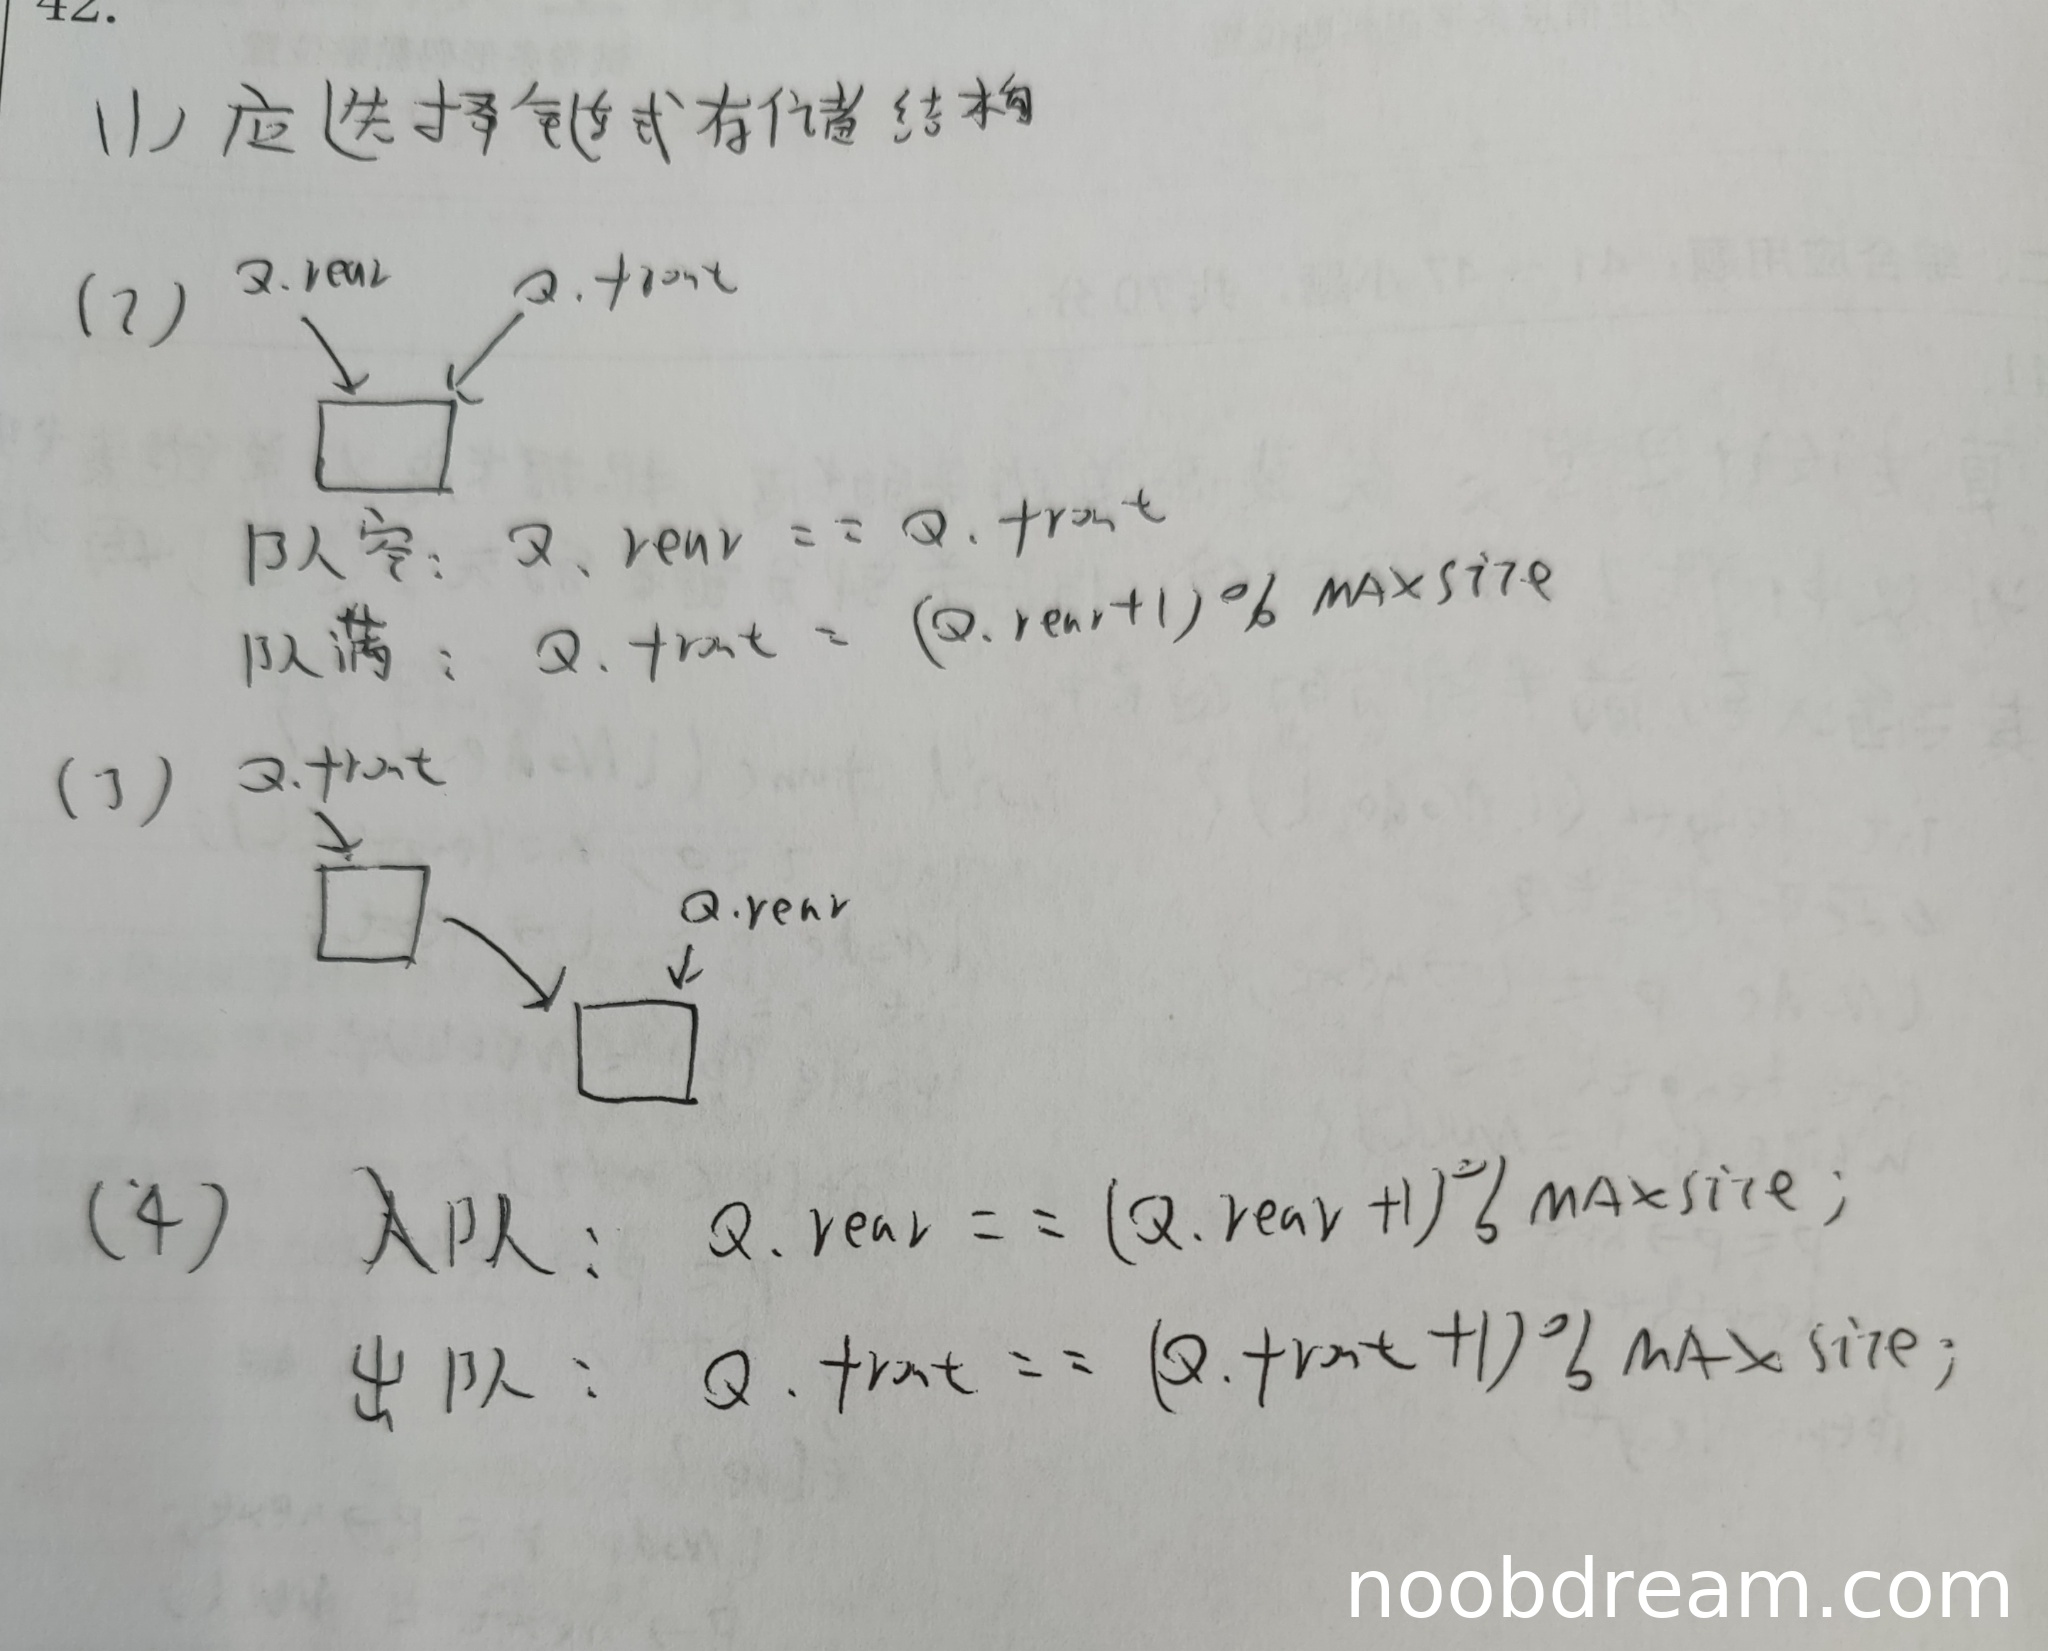 42.
(1) 应选择链式存储结构
(2) Q.rear Q.front
队空: Q.rear == Q.front
队满: Q.front = (Q.rear+1)%MAXsize
(3) Q.front
Q.rear
(4) 入队: Q.rear == (Q.rear+1)%MAXsize;
出队: Q.front == (Q.front+1)%MAXsize;
noobdream.com